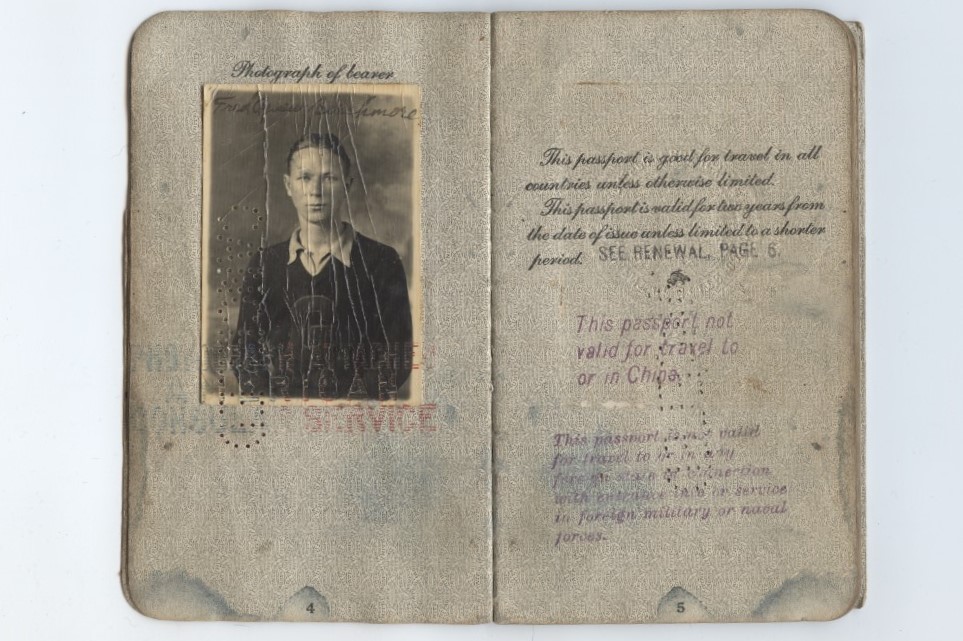 Photograph of bearer
PHOTOGRAPH ATTACHED
SERVICE
4
This passport is good for travel in all
countries unless otherwise limited.
This passport is valid for two years from
the date of issue unless limited to a shorter
period. SEE RENEWAL, PAGE 6.
This passport not
valid for travel to
or in China.
This passport is not valid
for travel to or in any
foreign state in connection
with entrance into or service
in foreign military or naval
forces.
5